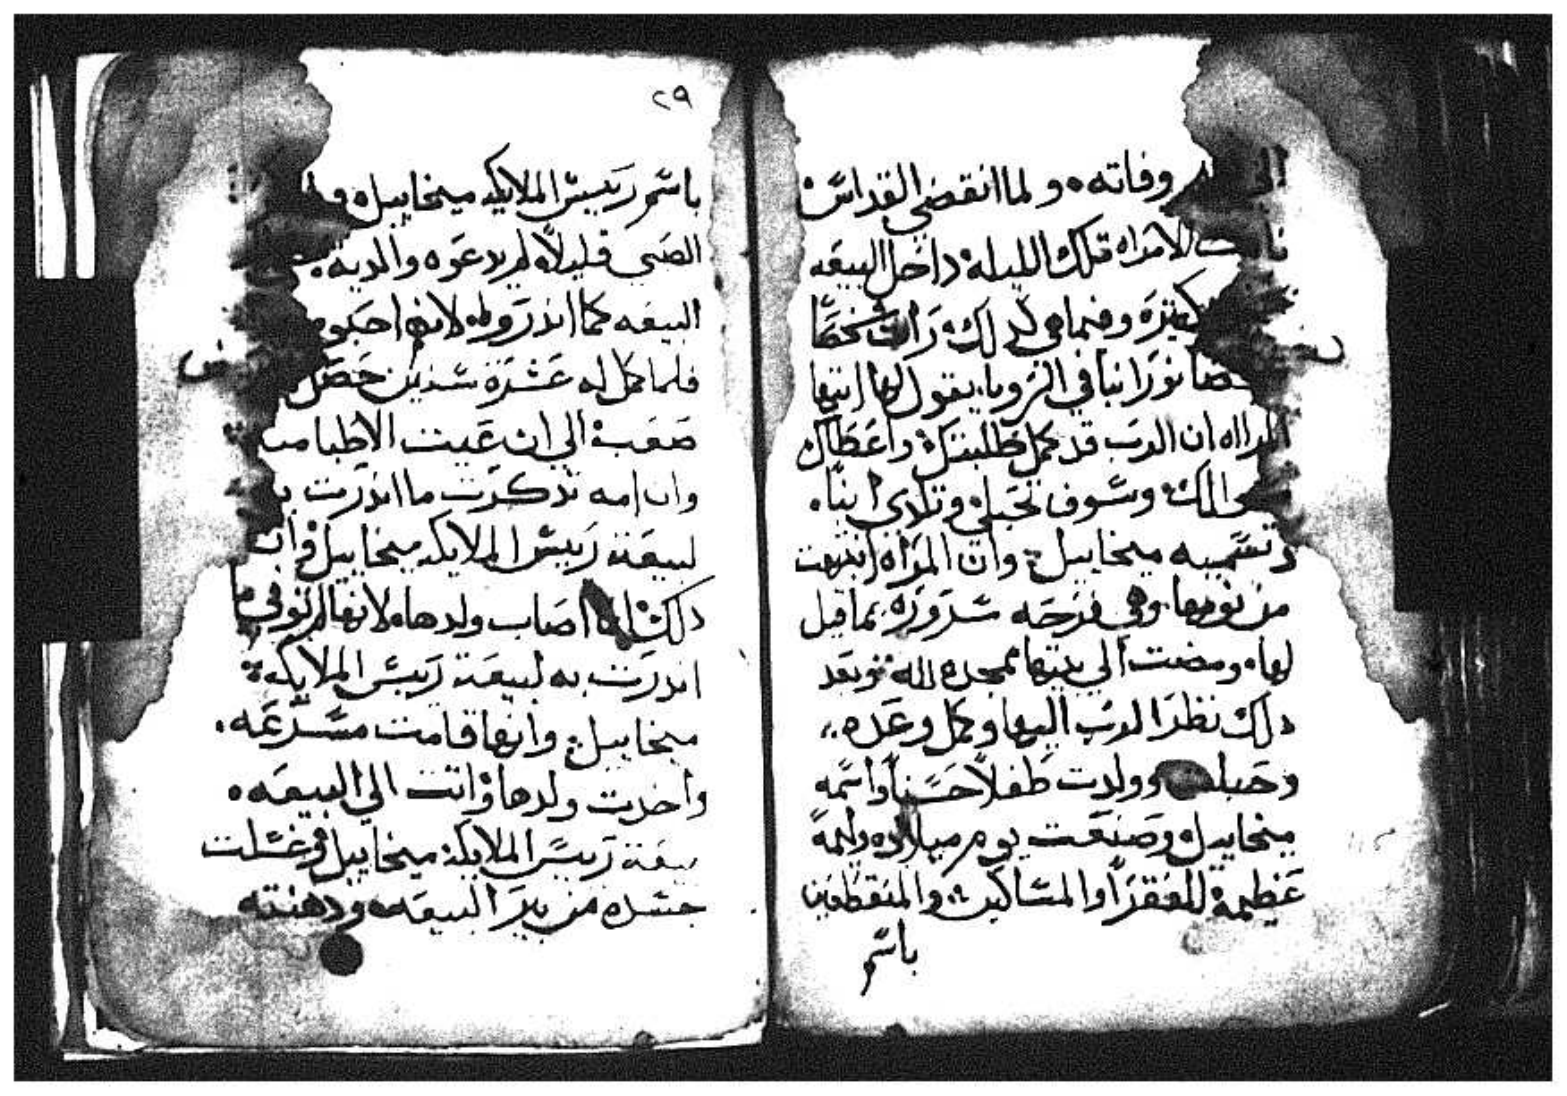 وفاته ولما انقضي القداس
الامراه تلك الليله داخل البيعه
كثيره وفيما هي كدلك رات شخصًا
نورانيا في الرويا يقول لها ايتها
المراه ان الرب قد كمل طلبتك واعطاك
وسوف تحبلي وتلدي ابنًا
وتسميه ميخاييل وان المراه انتبهت
من نومها وهي فرحه مسروره بما قيل
لها ومضت الي بيتها ممجده لله وبعد
دلك نظر الرب اليها وكمل وعده
وحبلت وولدت طفلًا حسنًا واسمه
ميخاييل وصنعت يوم ميلاده وليمة
عظيمة للفقرا والمساكين والمنقطعين
باسم
٢٩
باسم رييس الملايكه ميخاييل
الصبي قليلًا لم يدعوه والديه
البيعه كما اندروا لانهم احبوه
فلما كمل له عشرة سنين حصل
صعب الي ان عييت الاطبا
وان امه تدكرت ما اندرت
لبيعة رييس الملايكه ميخاييل وان
دلك اصاب ولدها لانها لم توفي ما
اندرت به لبيعة رييس الملايكه
ميخاييل وانها قامت مسرعه
واخدت ولدها واتت الي البيعه
بيعة رييس الملايكه ميخاييل وغسلت
جسده من بير البيعه ودهنته